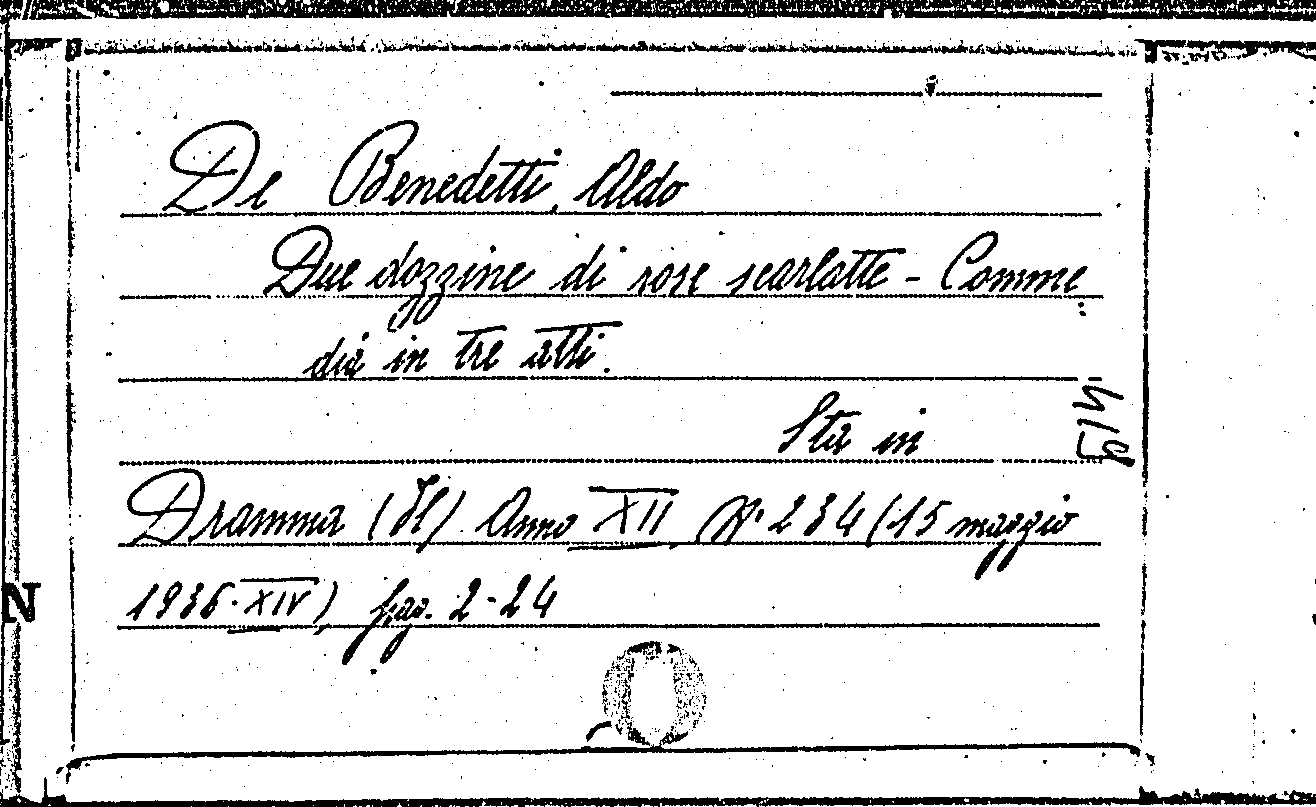 De Benedetti, Aldo
Due dozzine di rose scarlatte - Comme
dia in tre atti.
Sta in
Dramma (Il) Anno XII, N° 234 (15 maggio
1936-XIV), pgg. 2-24
N